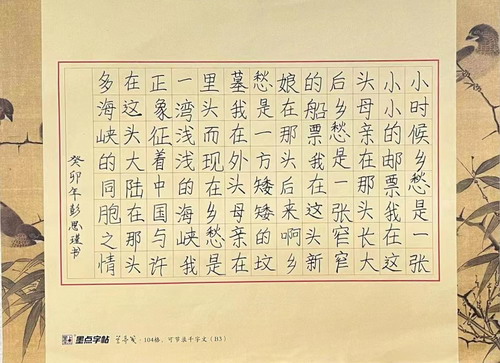 小时候乡愁是一张
小小的邮票我在这
头母亲在那头长大
后乡愁是一张窄窄
的船票我在这头新
娘在那头后来啊乡
愁是一方矮矮的坟
墓我在外头母亲在
里头而现在乡愁是
一湾浅浅的海峡我
正象征着中国与许
在这头大陆在那头
多海峡的同胞之情
癸卯年彭思瑾书
墨点字帖 兰亭笺·104格，可节录千字文（B5）